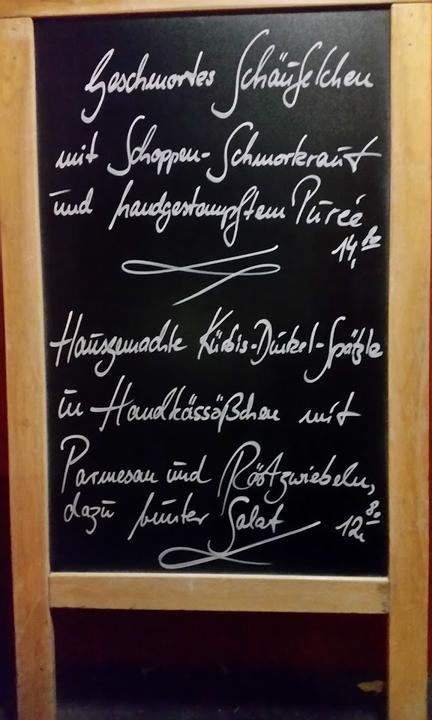 Geschmortes Schäufelchen
mit Schoppen-Schmorkraut
und handgestampftem Pureé
14,80
Hausgemachte Kürbis-Dinkel-Spätzle
in Handkässößchen mit
Parmesan und Röstzwiebeln,
dazu bunter Salat 12,80